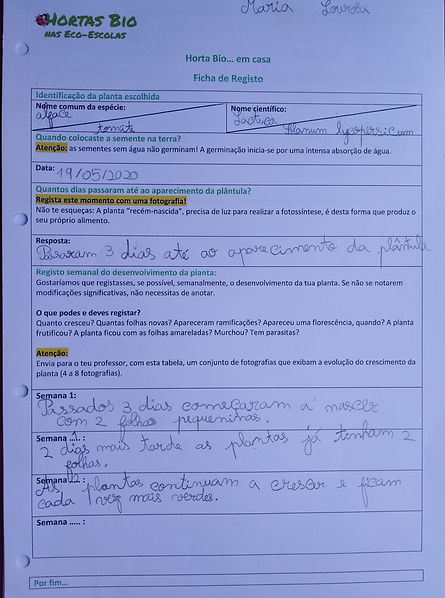 Maria Lourosa
HORTAS BIO
NAS ECO-ESCOLAS
Horta Bio... em casa
Ficha de Registo
Identificação da planta escolhida
Nome comum da espécie:
alface
tomate
Nome científico:
Lactuca
Solanum lycopersicum
Quando colocaste a semente na terra?
Atenção: as sementes sem água não germinam! A germinação inicia-se por uma intensa absorção de água.
Data: 19/05/2020
Quantos dias passaram até ao aparecimento da plântula?
Regista este momento com uma fotografia!
Não te esqueças: A planta "recém-nascida", precisa de luz para realizar a fotossíntese, é desta forma que produz o
seu próprio alimento.
Resposta:
Passaram 3 dias até ao aparecimento da plântula.
Registo semanal do desenvolvimento da planta:
Gostaríamos que registasses, se possível, semanalmente, o desenvolvimento da tua planta. Se não se notarem
modificações significativas, não necessitas de anotar.
O que podes e deves registar?
Quanto cresceu? Quantas folhas novas? Apareceram ramificações? Apareceu uma florescência, quando? A planta
frutificou? A planta ficou com as folhas amareladas? Murchou? Tem parasitas?
Atenção:
Envia para o teu professor, com esta tabela, um conjunto de fotografias que exibam a evolução do crescimento da
planta (4 a 8 fotografias).
Semana 1:
Passados 3 dias começaram a nascer
com 2 folhas pequeninas.
Semana ..1.. :
2 dias mais tarde as plantas já tinham 2
folhas.
Semana ..2.. :
As plantas continuam a crescer e ficam
cada vez mais verdes.
Semana ..... :
Por fim...